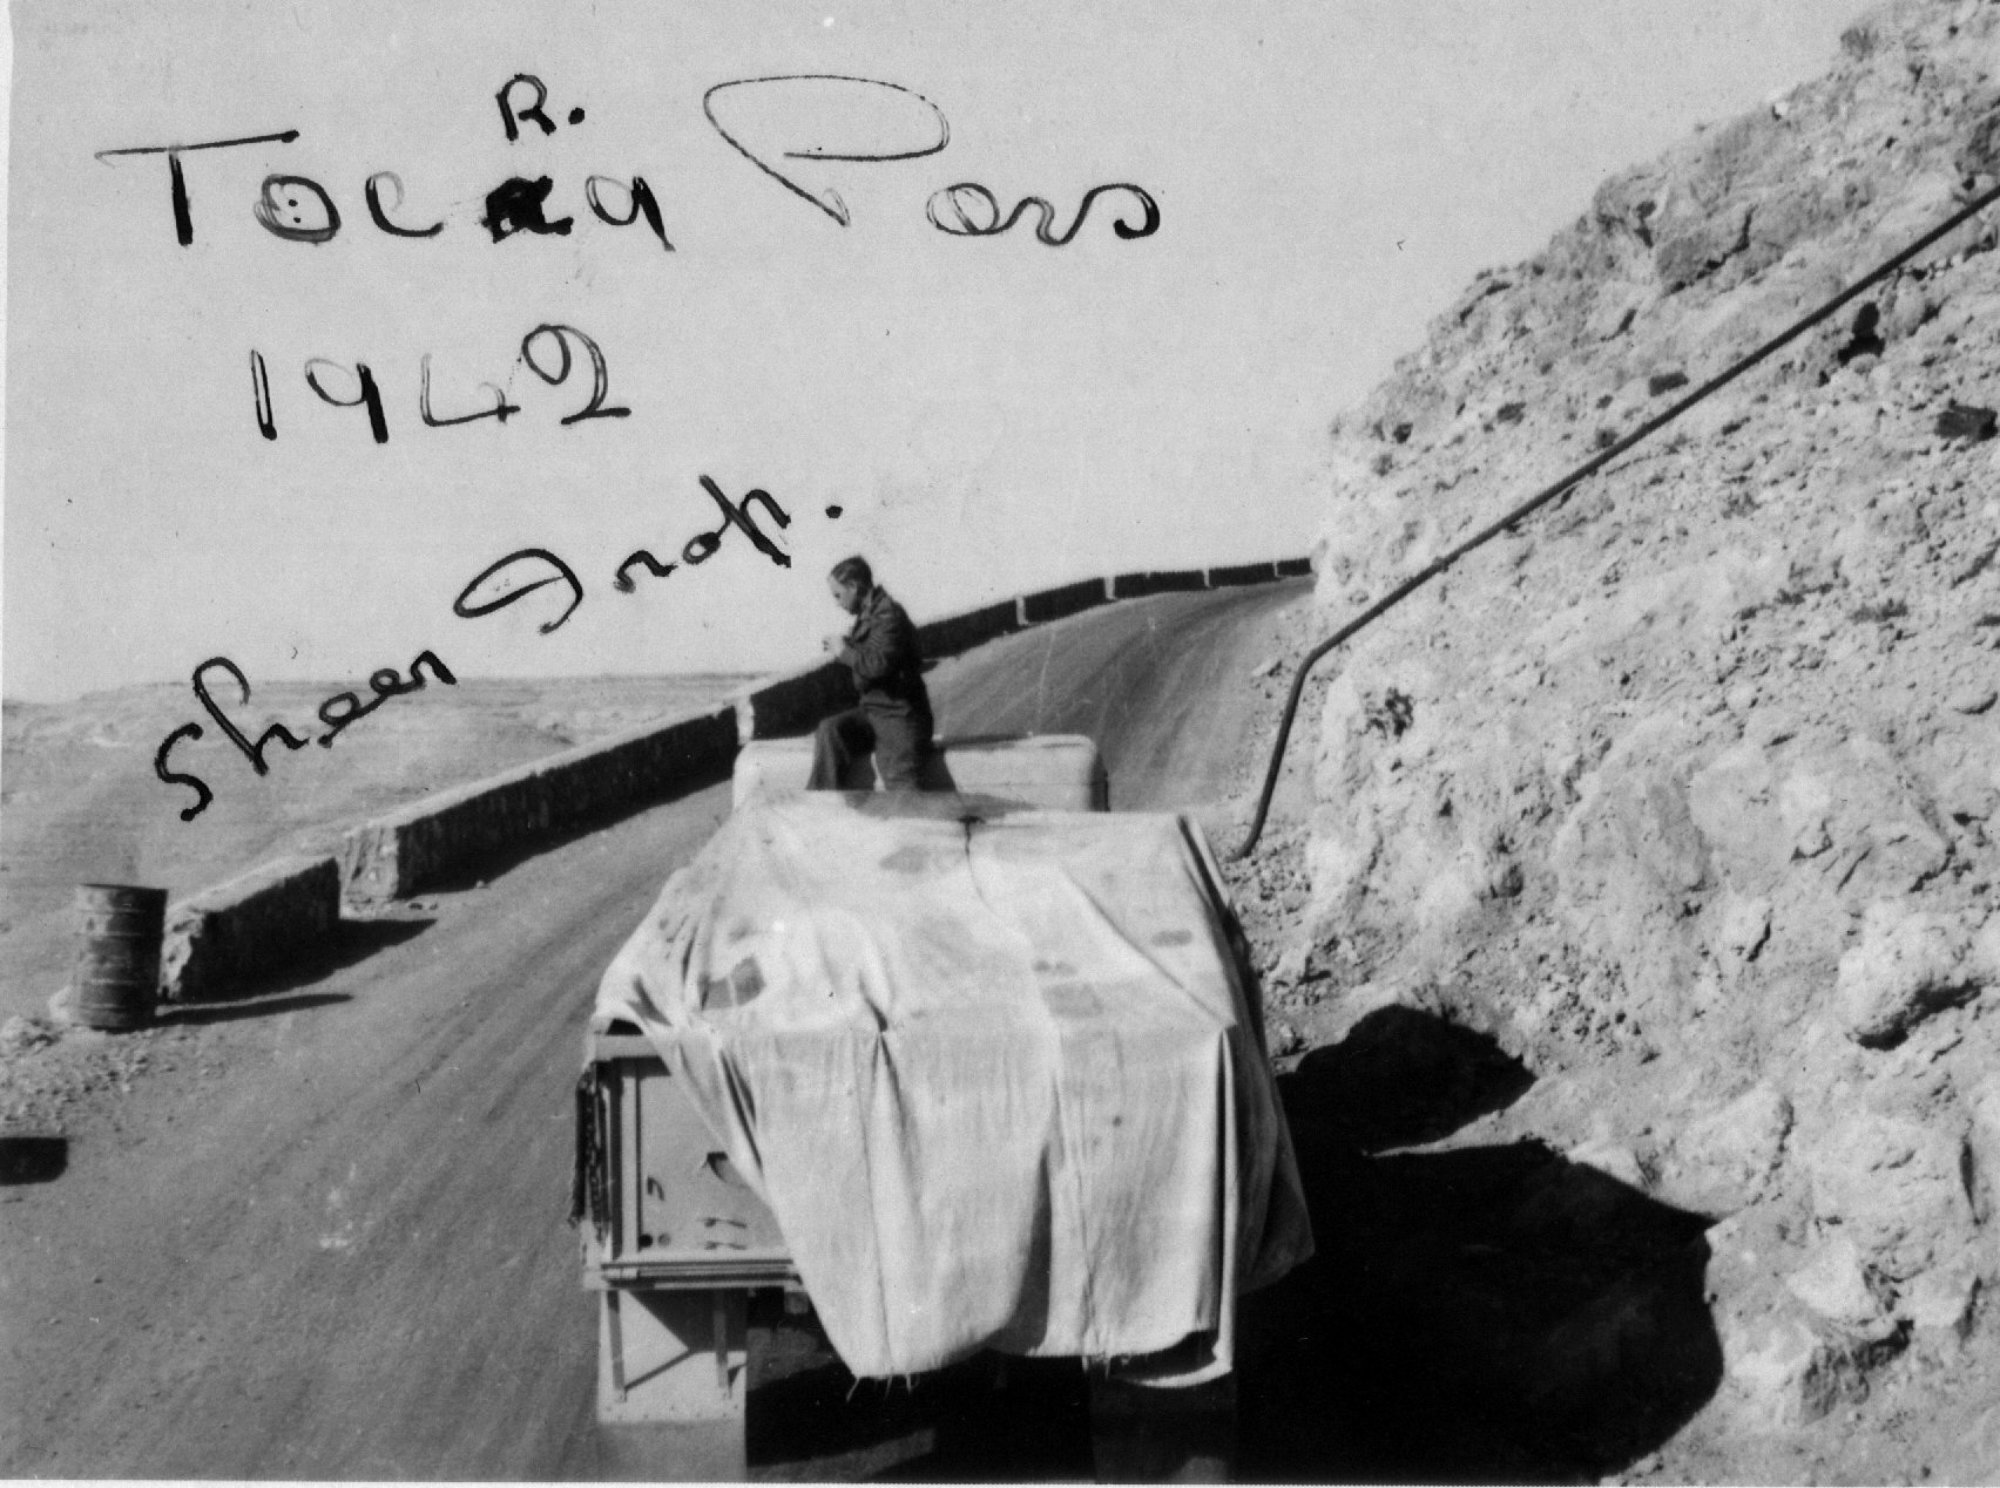 R.
Tocra Pass
1942
Sheer Drop.